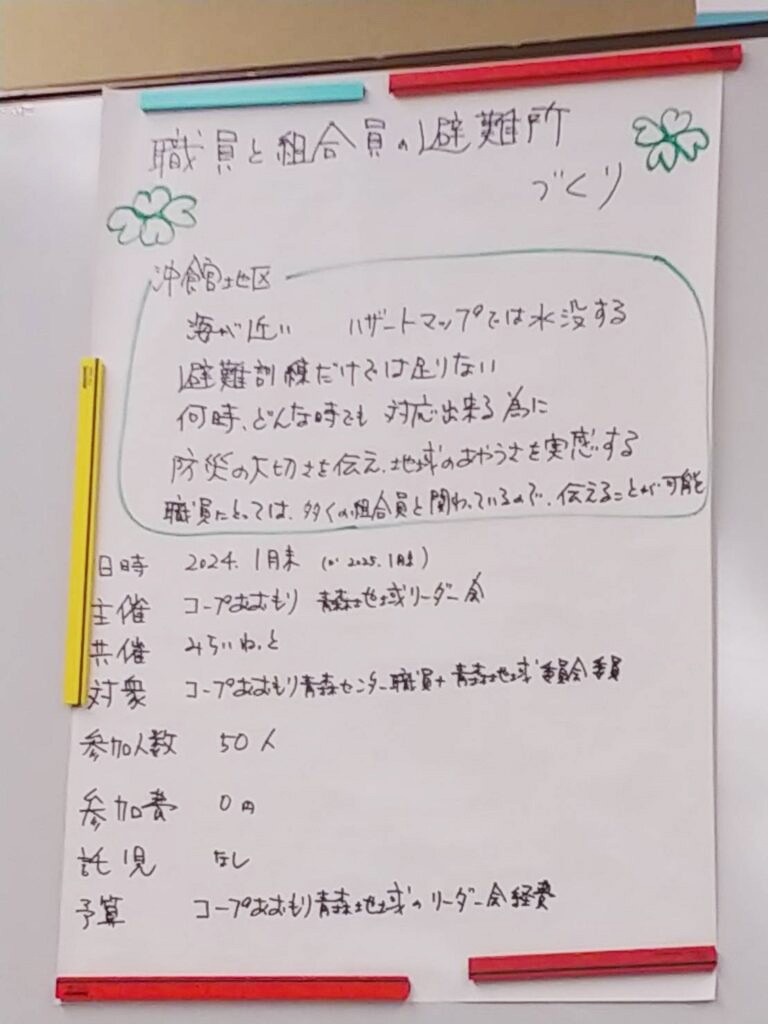 職員と組合員の避難所
づくり
沖館地区
海が近い ハザートマップでは水没する
避難訓練だけでは足りない
何時、どんな時でも 対応出来る為に
防災の大切さを伝え、地域のあやうさを実感する
職員にとっては、多くの組合員と関わっているので、伝えることが可能
日時 2024.1月末 (か 2025.1月末)
主催 コープあおもり 青森地域リーダー会
共催 みらいねっと
対衆 コープあおもり青森センター職員+青森地域委員会委員
参加人数 50人
参加費 0円
託児 なし
予算 コープあおもり青森地域のリーダー会経費